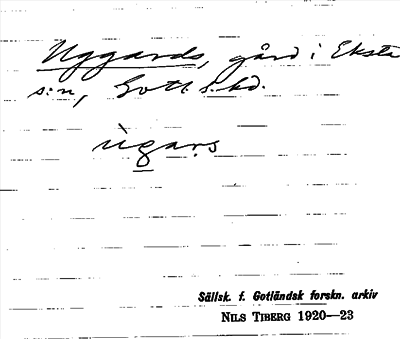 Uggards, gård i Eksta
s:n, Gotl. l:kd.
ùgaṛs
Sällsk. f. Gotländsk forskn. arkiv
NILS TIBERG 1920—23